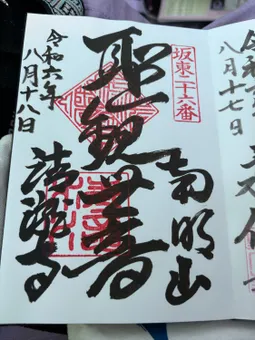 八月十七日
坂東二十六番
南明山
聖観世音
清瀧寺
令和六年
八月十八日